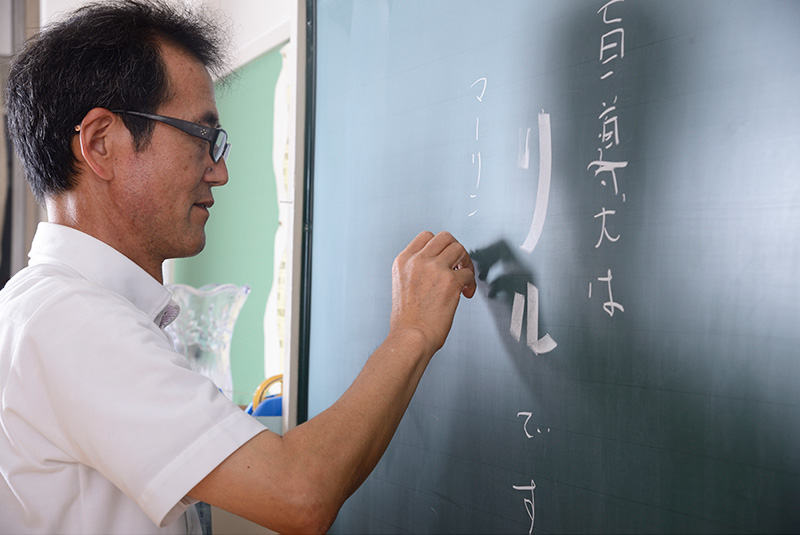 盲導犬は
リルです
マーリン